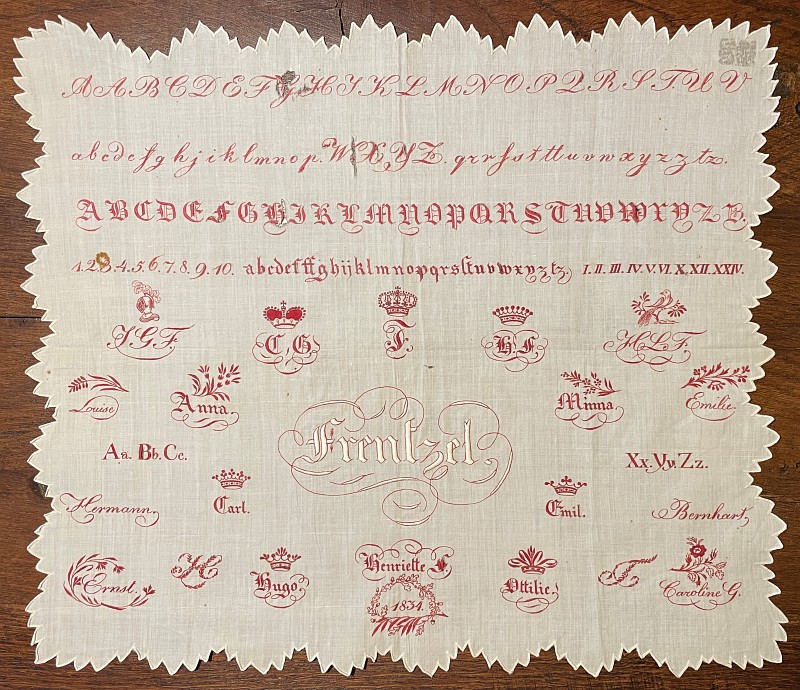 A A B C D E F G H I K L M N O P Q R S T U V
a b c d e f g h j i k l m n o p. W X Y Z. q r r s s t tt u v w x y z z tz.
A B C D E F G H I K L M N O P Q R S T U V W X Y Z B.
1. 2. 3. 4. 5. 6. 7. 8. 9. 10. a b c d e f ff g h i j k l m n o p q r s ſt u v w x y z tz. I. II. III. IV. V. VI. X. XII. XXIV.
J. G. F. C. G. F. H. F. H. L. F.
Louise Anna. Minna. Emilie.
Frentzel.
Aa. Bb. Cc. Xx. Yy. Zz.
Hermann. Carl. Emil. Bernhart.
Ernst. H Hugo. Henriette F. Ottilie. F Caroline G.
1834.